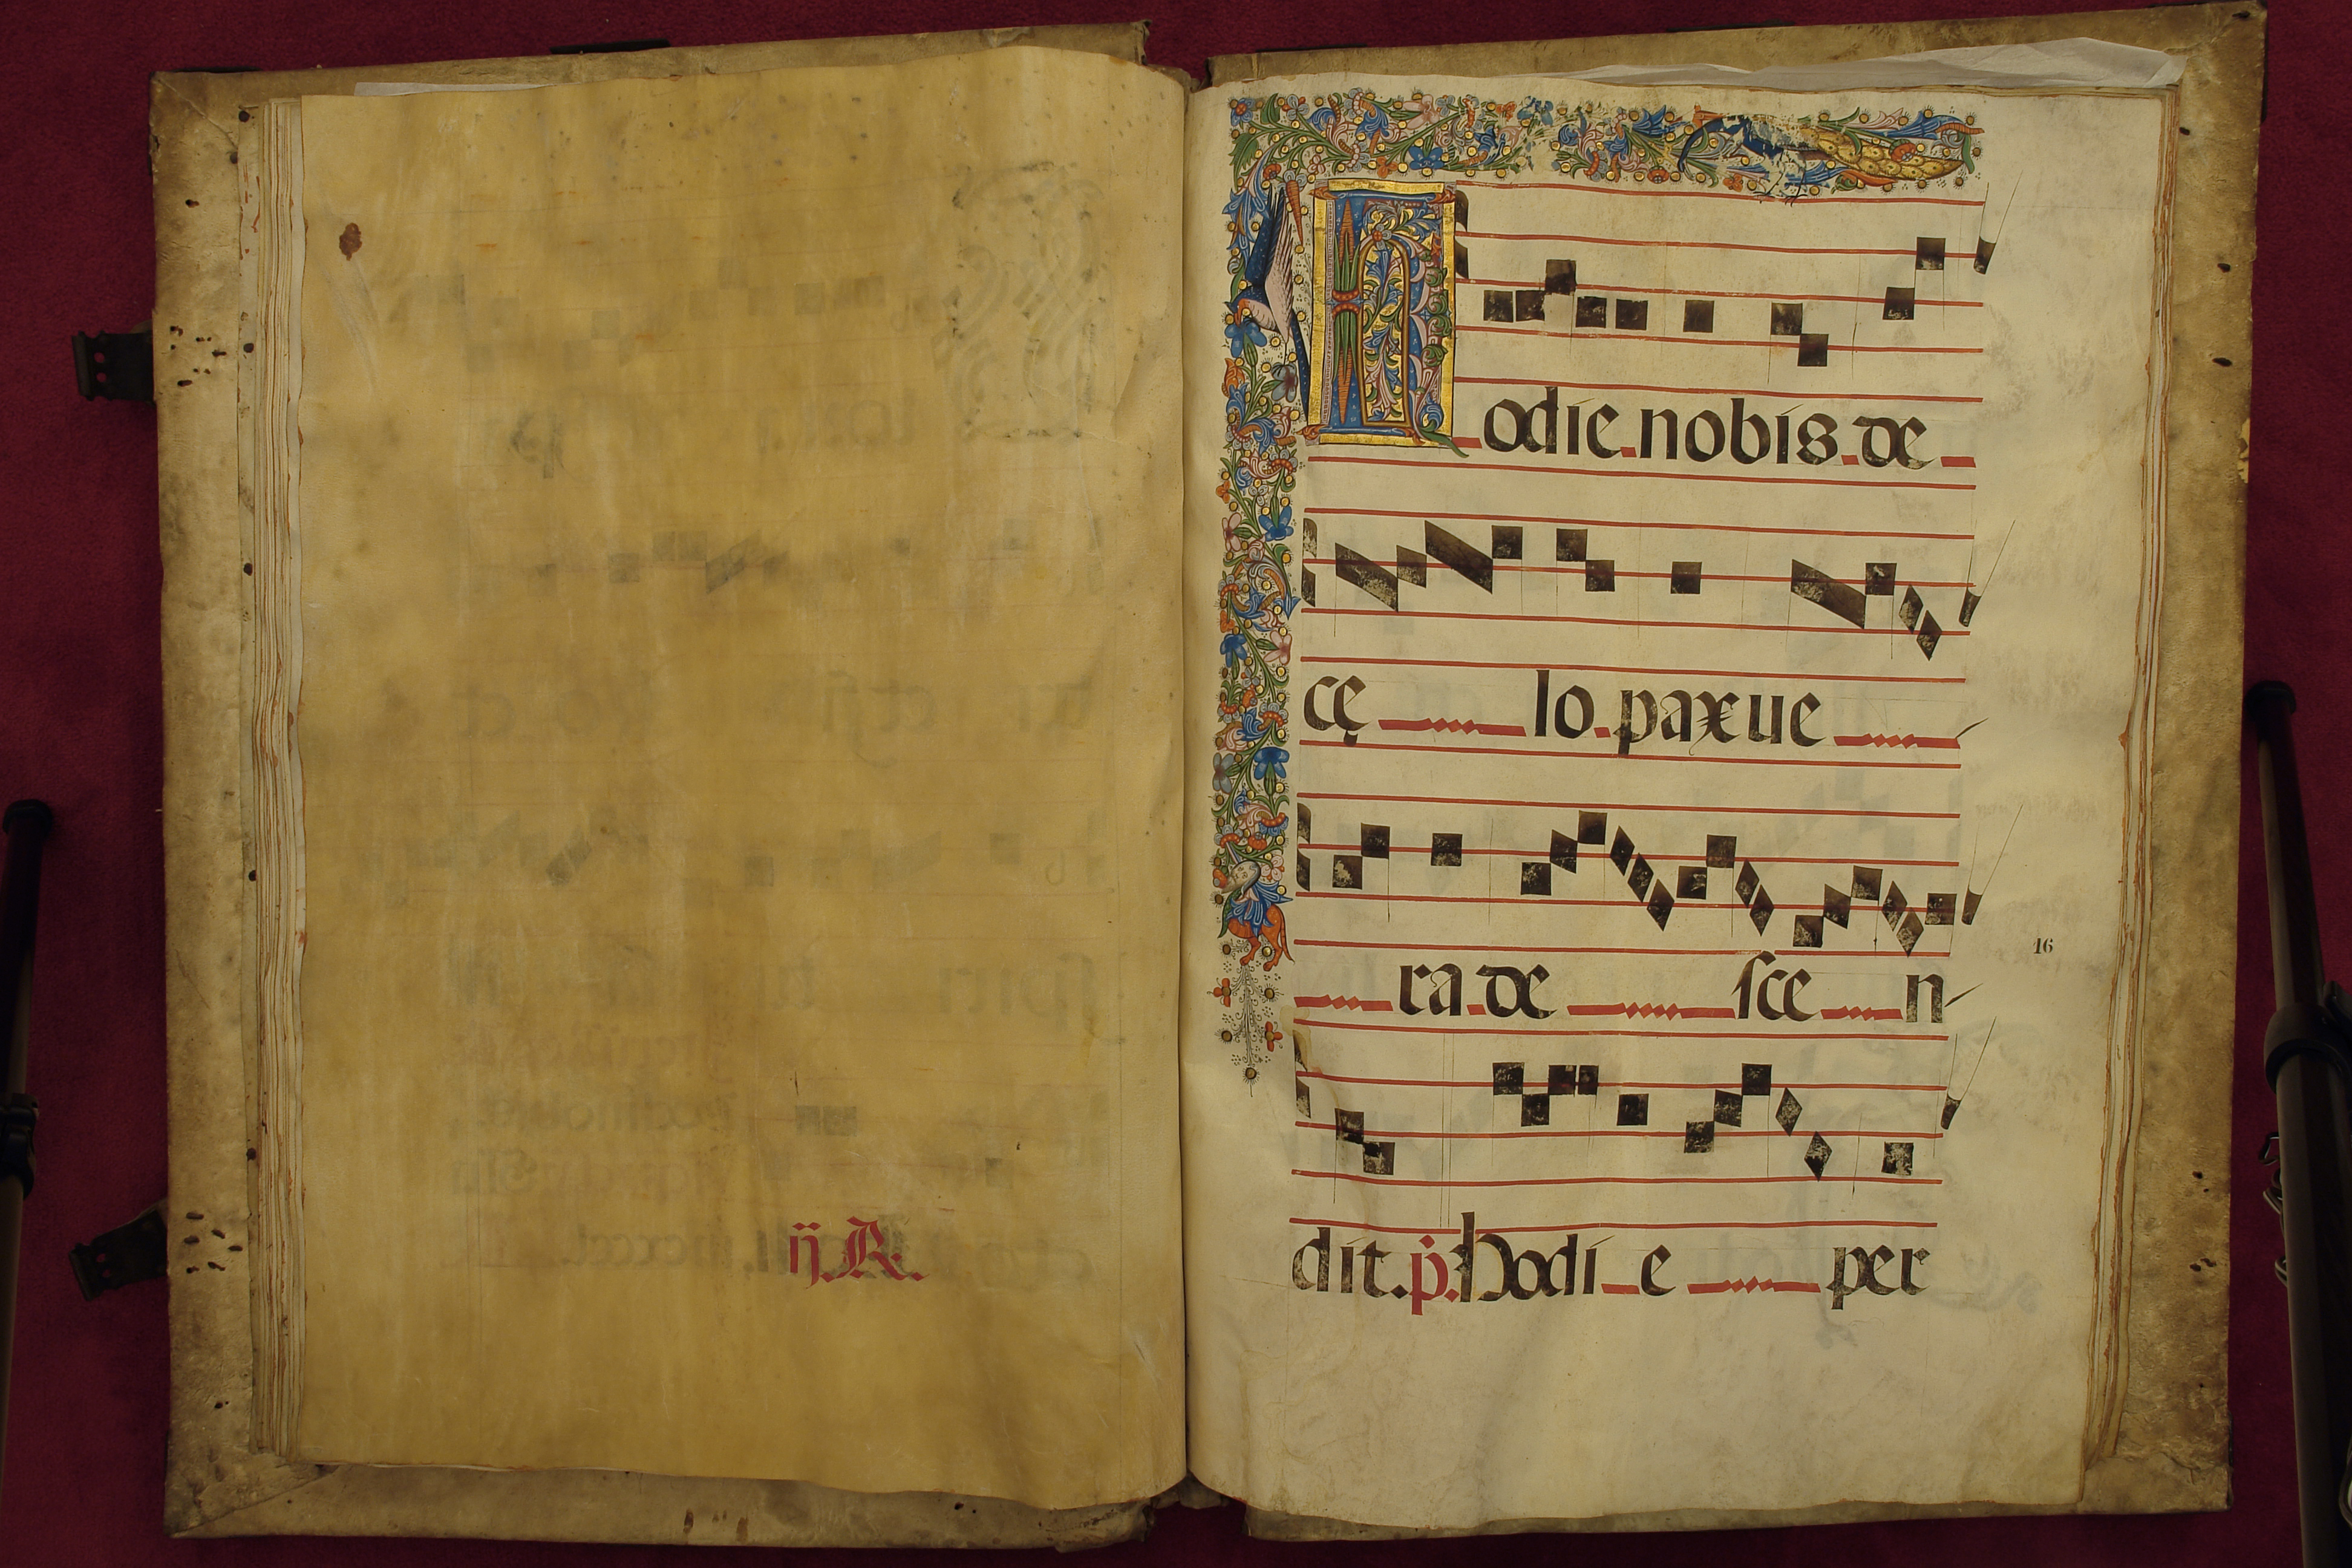 ij. R.
Hodie.nobis.de
cę lo.pax ue
16
ra.de sce n
dit. p. Hodi e per